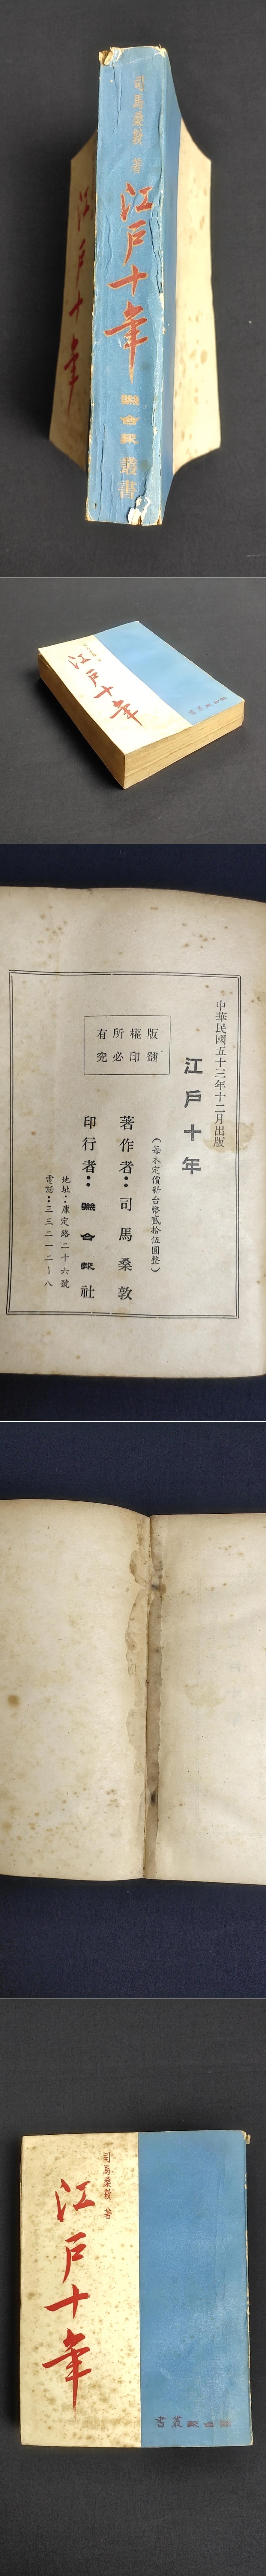 司馬桑敦 著
江戶十年
聯合報叢書
江戶十年
江戶十年
聯合報叢書
中華民國五十三年十二月出版
江戶十年
(每本定價新台幣貳拾伍圓整)
版權所有
翻印必究
著作者：司馬桑敦
印行者：聯合報社
地址：康定路二十六號
電話：三三二一二一八
司馬桑敦 著
江戶十年
聯合報叢書